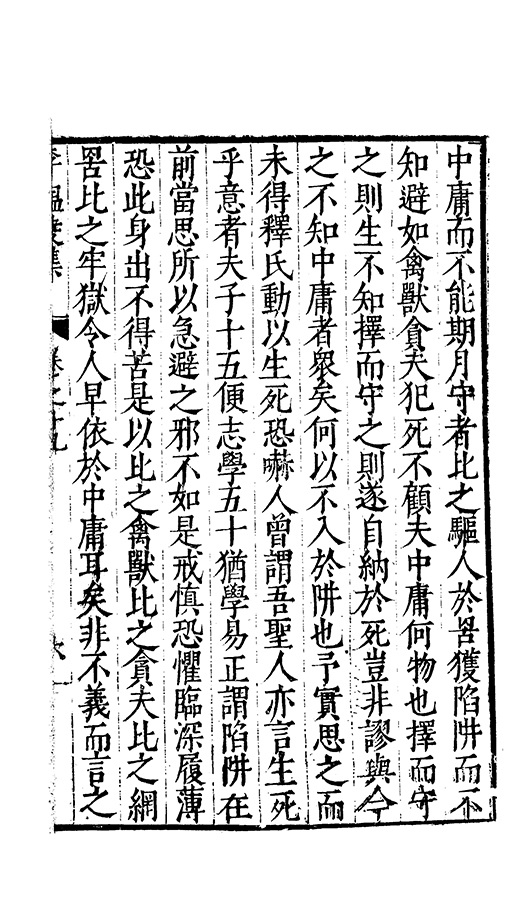 中庸而不能期月守者比之驅人於罟獲陷阱而不
知避如禽獸貪夫犯死不顧夫中庸何物也擇而守
之則生不知擇而守之則遂自納於死豈非謬與今
之不知中庸者衆矣何以不入於阱也予實思之而
未得釋氏動以生死恐嚇人曾謂吾聖人亦言生死
乎意者夫子十五便志學五十猶學易正謂陷阱在
前當思所以急避之邪不如是戒慎恐懼臨深履薄
恐此身出不得苦是以比之禽獸比之貪夫比之網
罟比之牢獄令人早依於中庸耳矣非不義而言之
李溫陵集 卷之十九